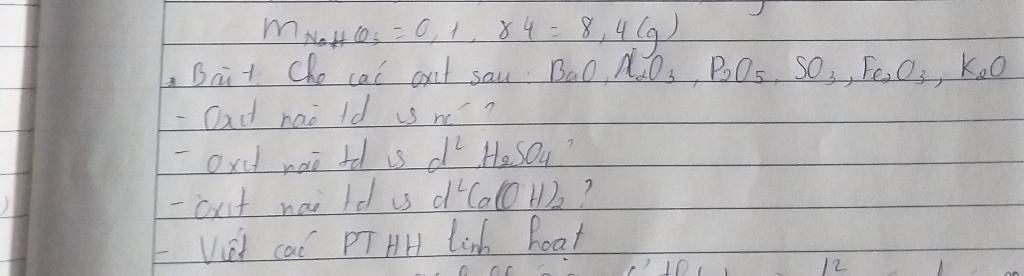 mNaHCO3 = 0,1 . 84 = 8,4 (g)
Bài 1: Cho các oxit sau: BaO, Al2O3, P2O5, SO3, Fe2O3, K2O
- Oxit nào td vs nc?
- Oxit nào td vs d² H2SO4?
- Oxit nào td vs d² Ca(OH)2?
- Viết các PTHH linh hoạt